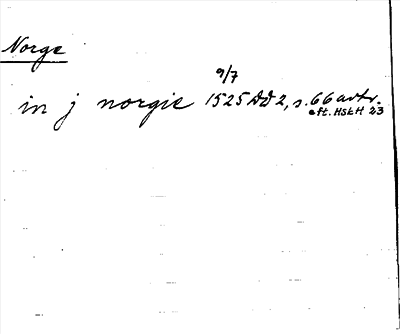 Norge
9/7
in j norgie 1525 DD 2, s. 66 avtr.
eft. HSH 23